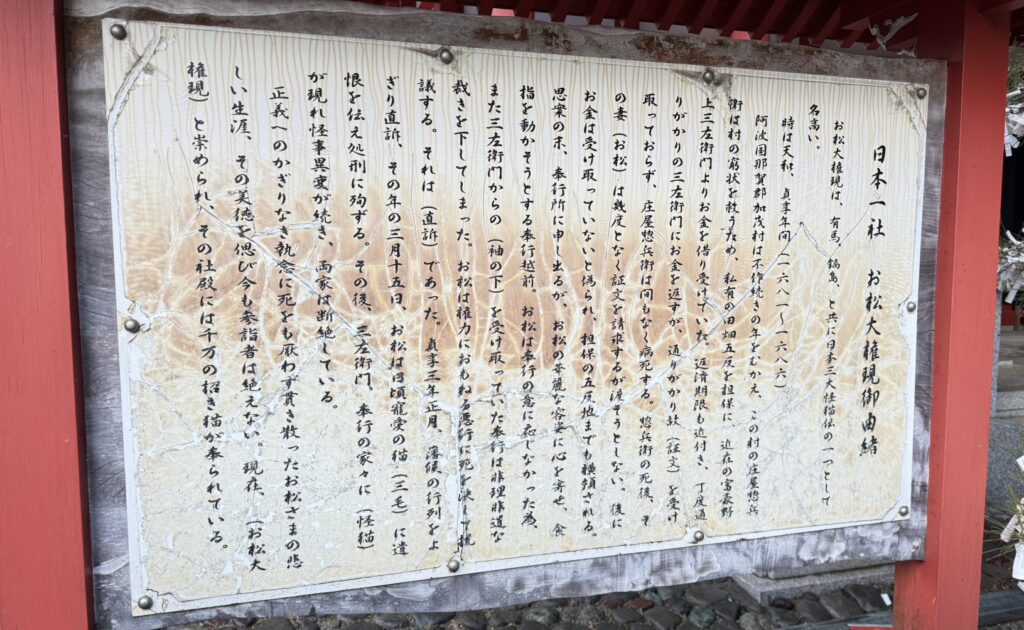 日本一社　お松大権現御由緒
お松大権現は、有馬、鍋島、と共に日本三大怪猫伝の一つとして
名高い。
時は天和、貞享年間（一六八一〜一六八六）
阿波国那賀郡加茂村は不作続きの年をむかえ、この村の庄屋惣兵
衛は村の窮状を救うため、私有の田畑五反を担保に、近在の富豪野
上三左衛門よりお金を借り受けていた。返済期限も近付き、丁度通
りがかりの三左衛門にお金を返すが、通りがかり故（証文）を受け
取っておらず、庄屋惣兵衛は間もなく病死する。惣兵衛の死後、そ
の妻（お松）は幾度となく証文を請求するが渡そうとしない。後に
お金は受け取っていないと偽られ、担保の五反地までも横領される。
思案の末、奉行所に申し出るが、お松の華麗な容姿に心を寄せ、食
指を動かそうとする奉行越前。お松は奉行の意に応じなかった為、
また三左衛門からの（袖の下）を受け取っていた奉行は非理非道な
裁きを下してしまった。お松は権力におもねる悪行に死を決して抗
議する。それは（直訴）であった。貞享三年正月、藩候の行列をよ
ぎり直訴、その年の三月十五日、お松は日頃寵愛の猫（三毛）に遺
恨を伝え処刑に殉ずる。その後、三左衛門、奉行の家々に（怪猫）
が現れ怪事異変が続き、両家は断絶している。
正義へのかぎりなき執念に死をも厭わず貫き散ったお松さまの悲
しい生涯、その美徳を偲び今も参詣者は絶えない。現在、（お松大
権現）と崇められ、その社殿には千万の招き猫が奉られている。